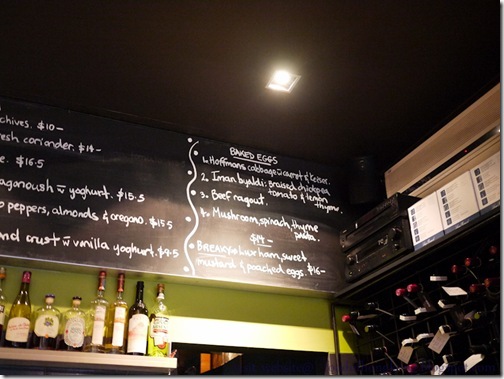 chives. $10-
resh coriander. $14-
e. $16.5
aganoush w̄ yoghurt. $15.5
o peppers, almonds & oregano. $15.5
nd crust w̄ vanilla yoghurt. $9.5
BAKED EGGS
1. Hoffmans cabbage w̄ carrot & Kaiser.
2. Iman byaldi: Braised chickpea
tomato & lemon
thyme.
3. Beef ragout.
4. Mushroom, spinach, thyme
$14-
BREAKY: ham, sweet
mustard & poached eggs. $16-